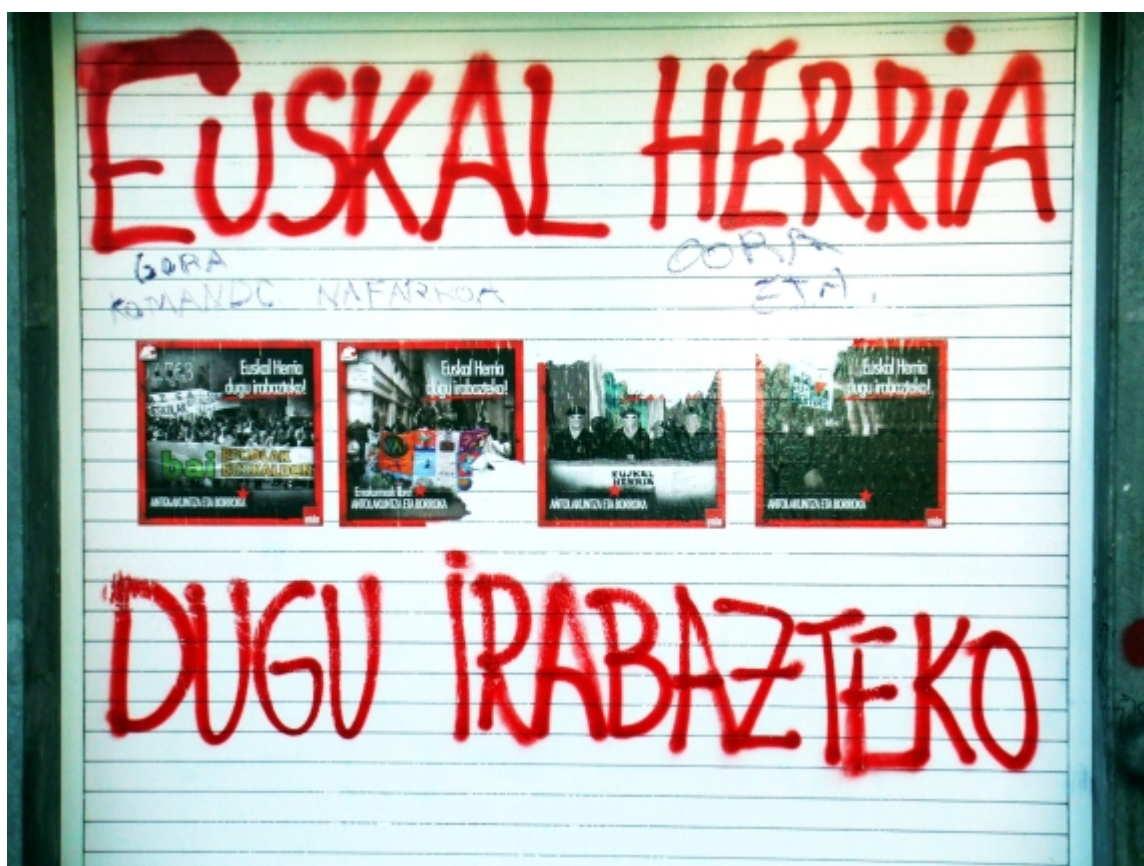 EUSKAL HERRIA
GORA
KOMANDO NAFARROA
GORA
ETA.
Euskal Herria
dugu irabazteko!
bai
ANTOLAKUNTZA ETA BORROKA
Euskal Herria
dugu irabazteko!
Emakumeak libre!
ANTOLAKUNTZA ETA BORROKA
EUSKAL
HERRIA
ANTOLAKUNTZA ETA BORROKA
Euskal Herria
dugu irabazteko!
ANTOLAKUNTZA ETA BORROKA
DUGU IRABAZTEKO